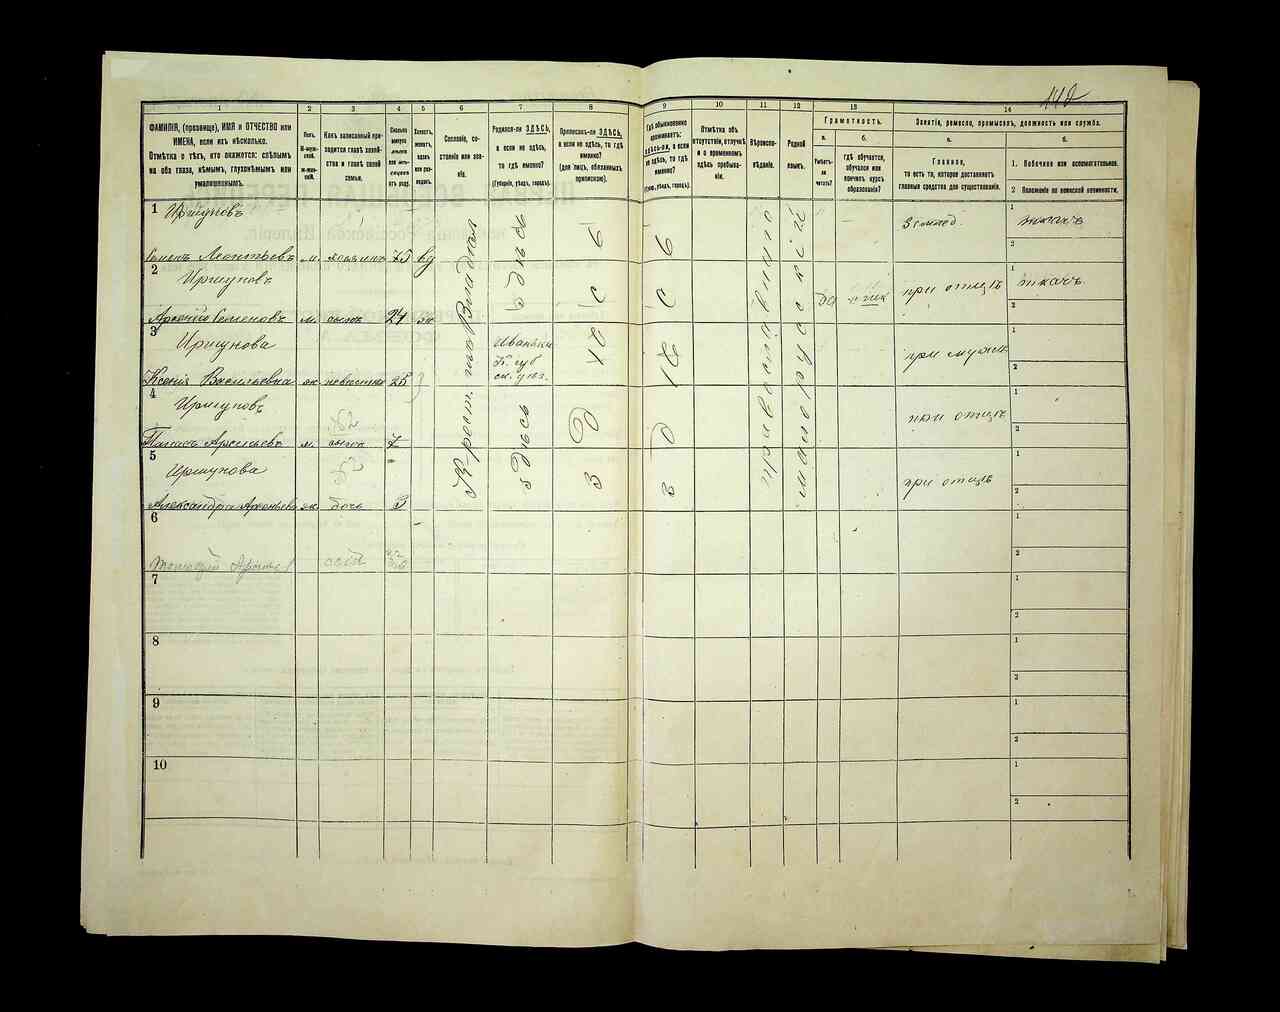 142
1 2 3 4 5 6 7 8 9 10 11 12 13 14
ФАМИЛІЯ, (прозвище), ИМЯ и ОТЧЕСТВО или ИМЕНА, если ихъ нѣсколько.
Отмѣтка о тѣхъ, кто окажется: слѣпымъ на оба глаза, нѣмымъ, глухонѣмымъ или умалишеннымъ.
Полъ.
М-мужской.
Ж-женскій.
Какъ записанный приходится главѣ хозяйства и главѣ своей семьи.
Сколько минуло лѣтъ или мѣсяцевъ отъ роду.
Холостъ, женатъ, вдовъ или разведенъ.
Сословіе, состояніе или званіе.
Родился-ли ЗДѢСЬ, а если не здѣсь, то гдѣ именно?
(Губернія, уѣздъ, городъ).
Приписанъ-ли ЗДѢСЬ, а если не здѣсь, то гдѣ именно?
(для лицъ, обязанныхъ припискою).
Гдѣ обыкновенно проживаетъ: здѣсь-ли, а если не здѣсь, то гдѣ именно?
(Губ., уѣздъ, городъ).
Отмѣтка объ отсутствіи, отлучкѣ и о временномъ здѣсь пребываніи.
Вѣроисповѣданіе.
Родной языкъ.
Грамотность.
а.
Умѣетъ-ли читать?
б.
гдѣ обучается, обучался или кончилъ курсъ образованія?
Занятіе, ремесло, промыселъ, должность или служба.
а.
Главное,
то есть то, которое доставляетъ главныя средства для существованія.
б.
1. Побочное или вспомогательное.
2 Положеніе по воинской повинности.
1 Иршуновъ
Семенъ Леонтьевъ м. хозяинъ 75 вд
землед.
1 ткачъ
2
2 Иршуновъ
Арсеній Семеновъ м. сынъ 27 ж
да
при отцѣ
1 ткачъ
2
3 Иршунова
Ксенія Васильевна ж невѣстка 25
К. губ
при мужѣ
1
2
4 Иршуновъ
Панасъ Арсеньевъ м. сынъ 7
при отцѣ
1
2
5 Иршунова
Александра Арсеньева ж. дочь 3
при отцѣ
1
2
здѣсь
здѣсь
здѣсь
здѣсь
православное
малорусскій
6
1
2
7
1
2
8
1
2
9
1
2
10
1
2